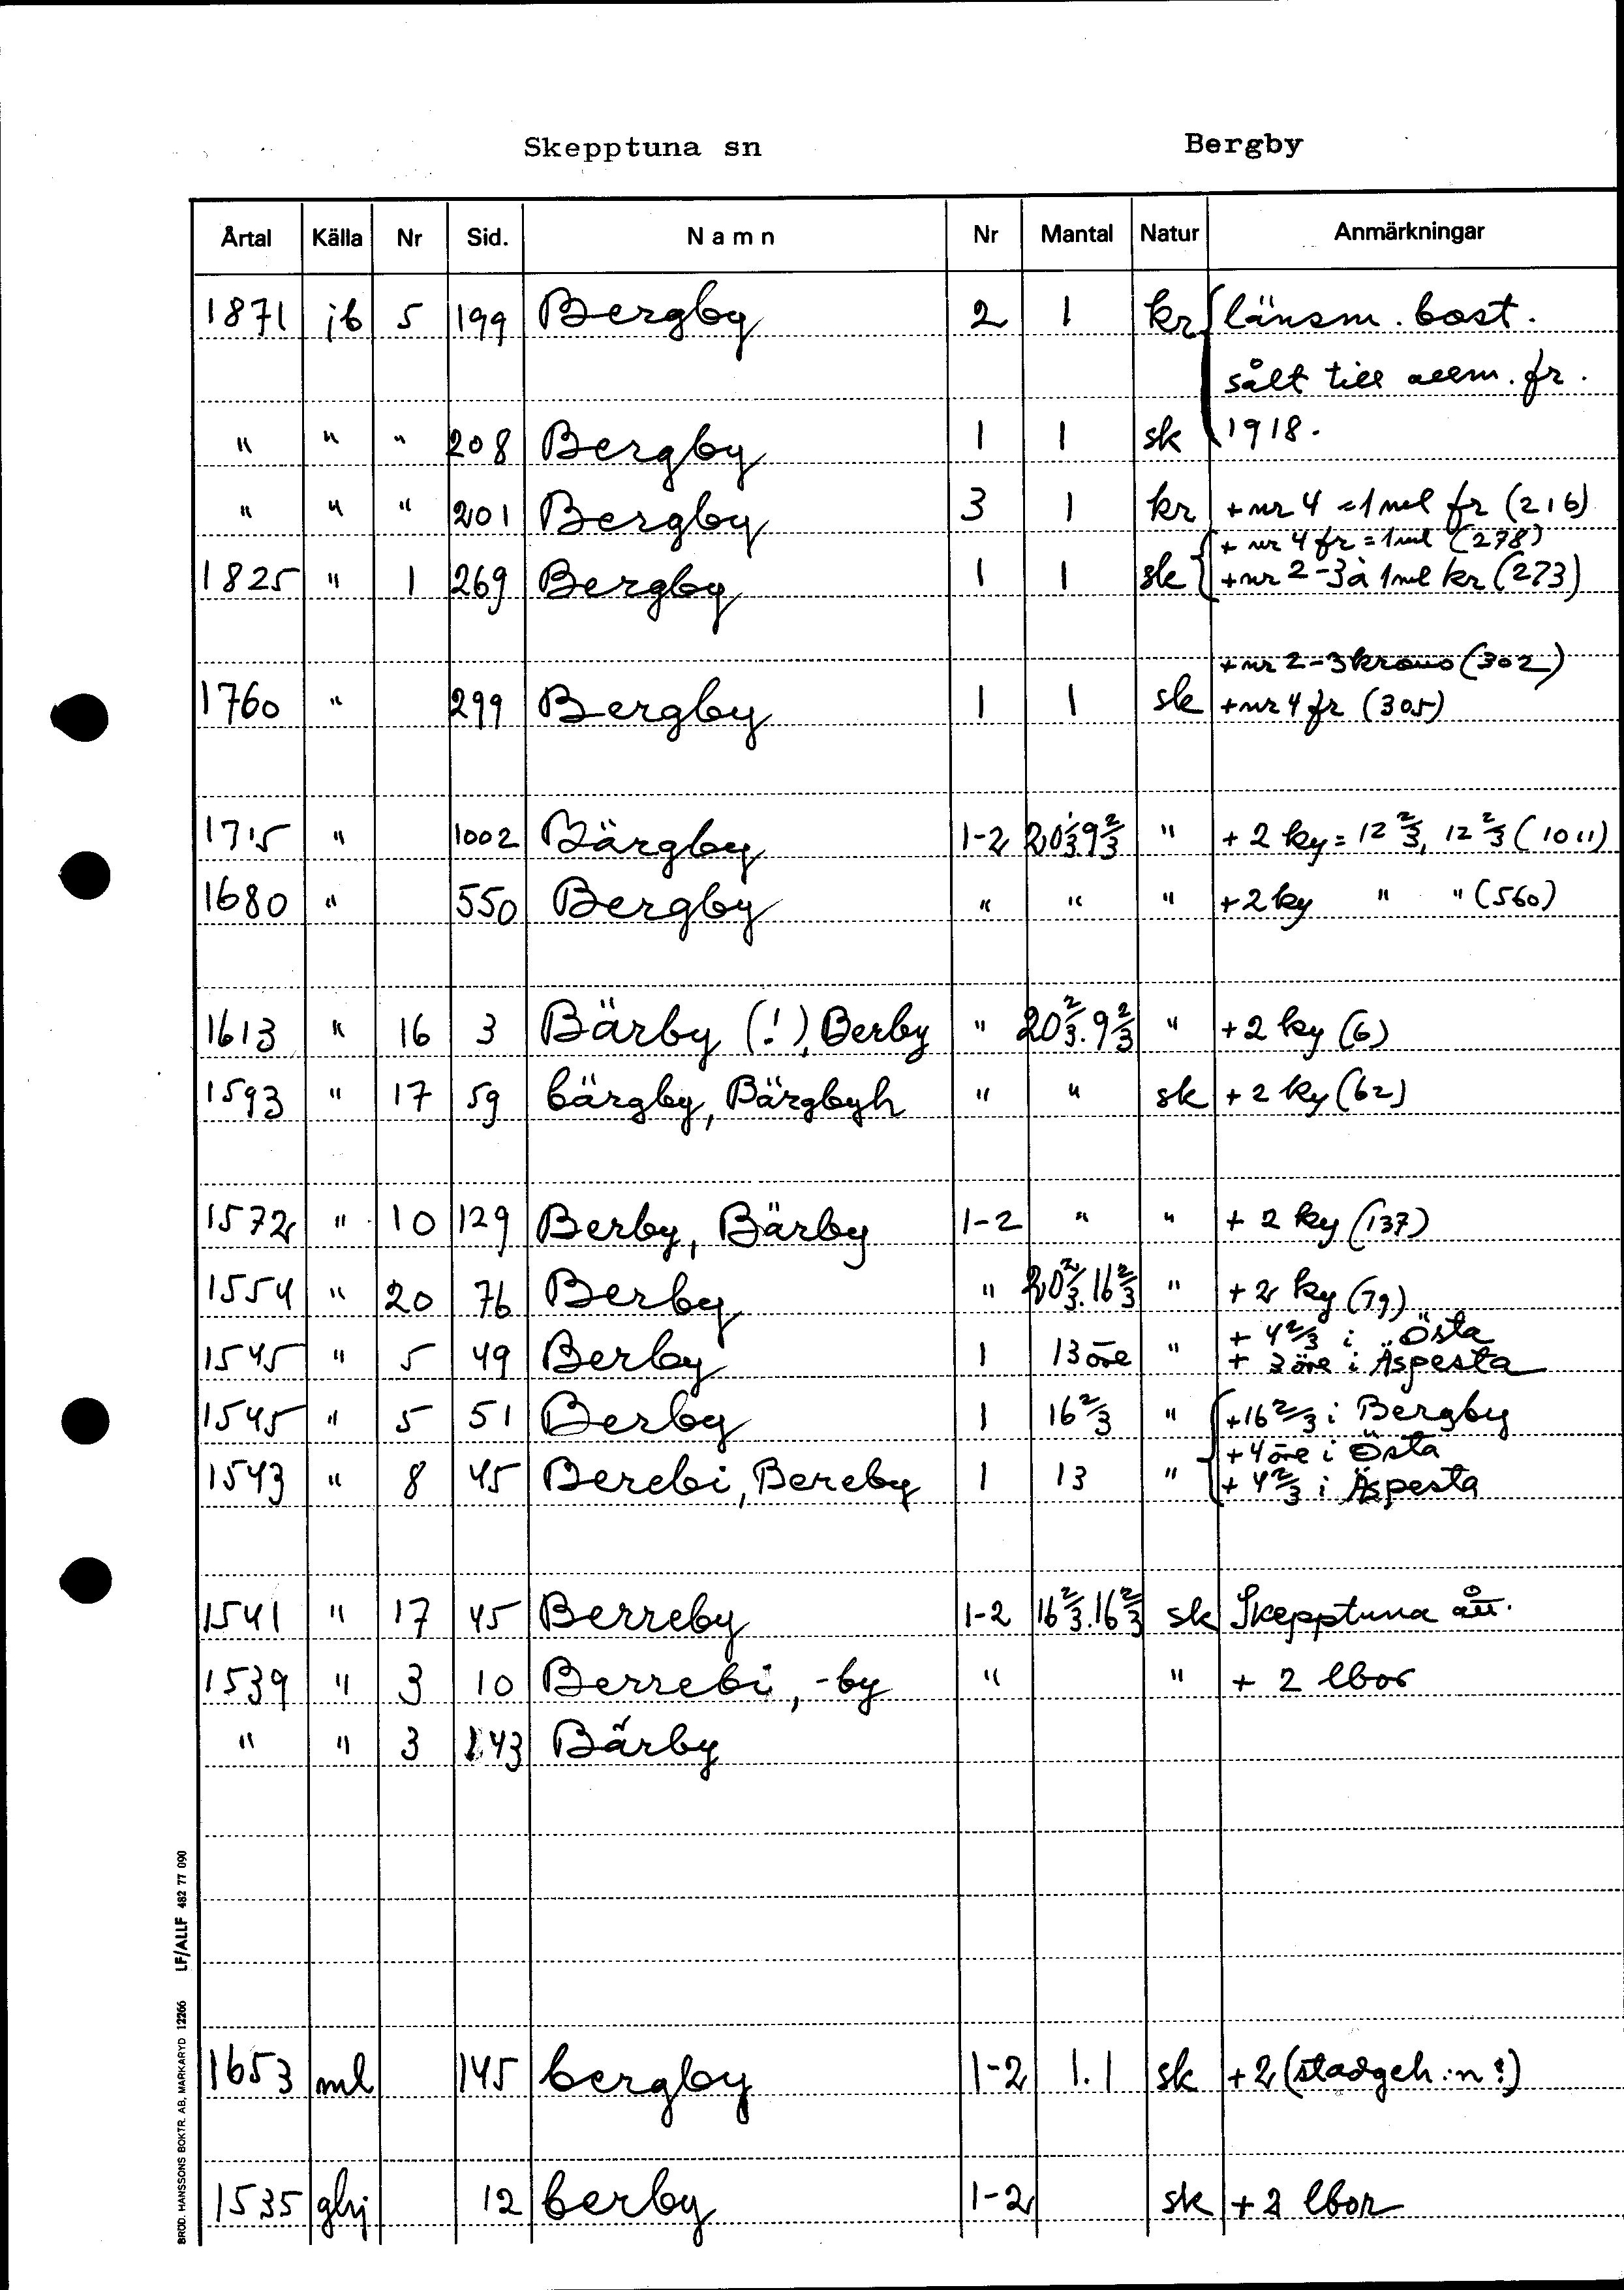 Skepptuna sn Bergby
Årtal Källa Nr Sid. Namn Nr Mantal Natur Anmärkningar
1871 jb 5 199 Bergby 2 1 kr länsm. bost.
sålt till allm. fr.
" " " 208 Bergby 1 1 sk 1918.
" " " 201 Bergby 3 1 kr + nr 4 = 1 ml fr (216)
+ nr 4 fr = 1 ml (278)
1825 " 1 269 Bergby 1 1 sk + nr 2-3 à 1 ml kr (273)
+ nr 2-3 krono (302)
1760 " 299 Bergby 1 1 sk + nr 4 fr (305)
1715 " 1002 Bärgby 1-2 20 1/3 9 2/3 " + 2 ky = 12 2/3, 12 2/3 (1011)
1680 " 550 Bergby " " " + 2 ky " " (560)
1613 " 16 3 Bärby (!), Berby " 20 2/3. 9 2/3 " + 2 ky (6)
1593 " 17 59 bärgby, Bärgbyh " " sk + 2 ky (62)
1572 " 10 129 Berby, Bärby 1-2 " " + 2 ky (137)
1554 " 20 76 Berby " 20 2/3. 16 2/3 " + 2 ky (79)
+ 4 2/3 i Östa
1545 " 5 49 Berby 1 13 öre " + 3 öre i Äspesta
1545 " 5 51 Berby 1 16 2/3 " + 16 2/3 i Bergby
+ 4 öre i Östa
1543 " 8 45 Berebi, Bereby 1 13 " + 4 2/3 i Äspesta
1541 " 17 45 Berreby 1-2 16 2/3. 16 2/3 sk Skepptuna ått.
1539 " 3 10 Berrebi, -by " " + 2 lbor
" " 3 143 Bärby
1653 ml 145 bergby 1-2 1.1 sk + 2 (stadgeh:n?)
1535 ghj 12 berby 1-2 sk + 2 lbor
BROD. HANSSONS BOKTR. AB, MARKARYD 12266 LF/ALLF 482 77 090